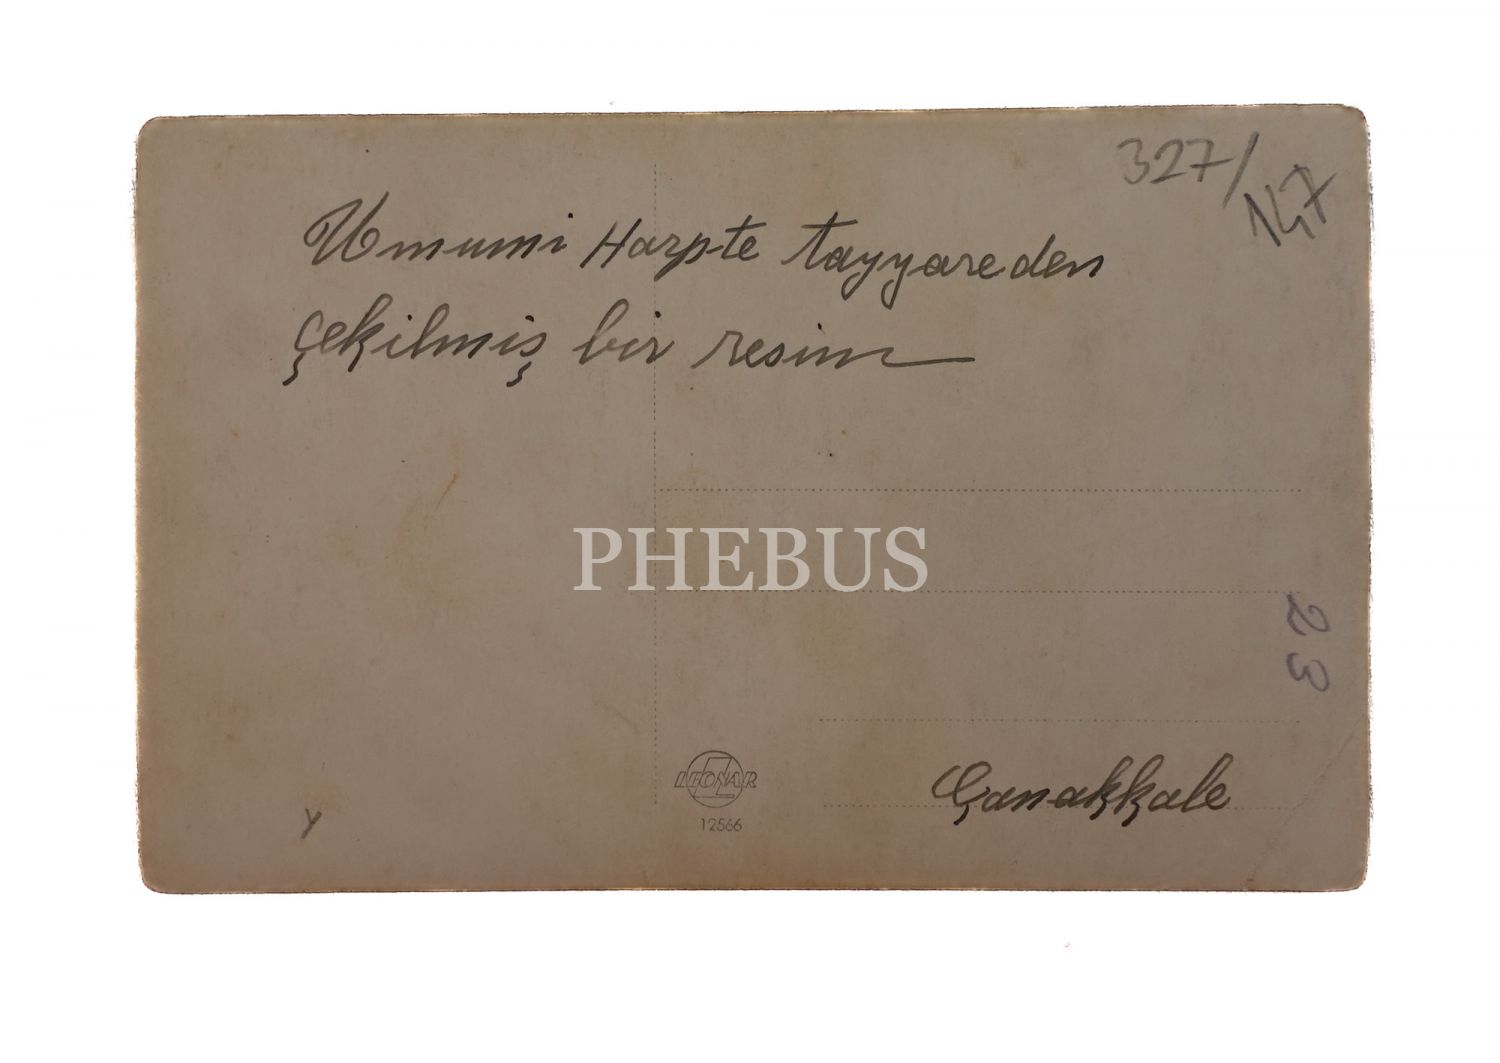 327/
147
Umumi Harpte tayyareden
çekilmiş bir resim
PHEBUS
23
LEONAR
12566
Çanakkale
Y